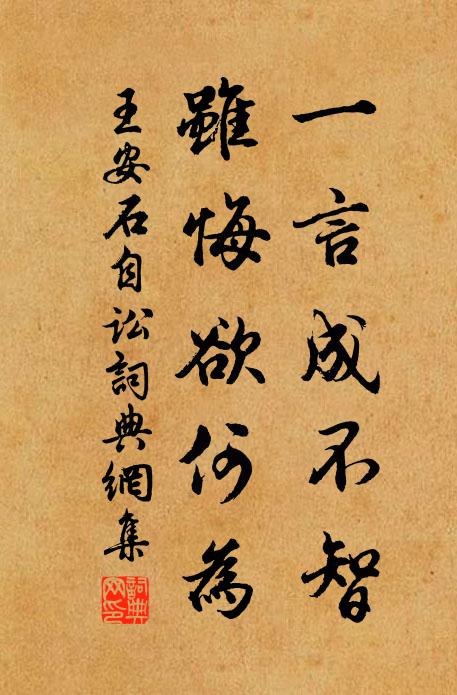 一言成不智
雖悔欲何為
王安石自訟詞典網集
詞典網印